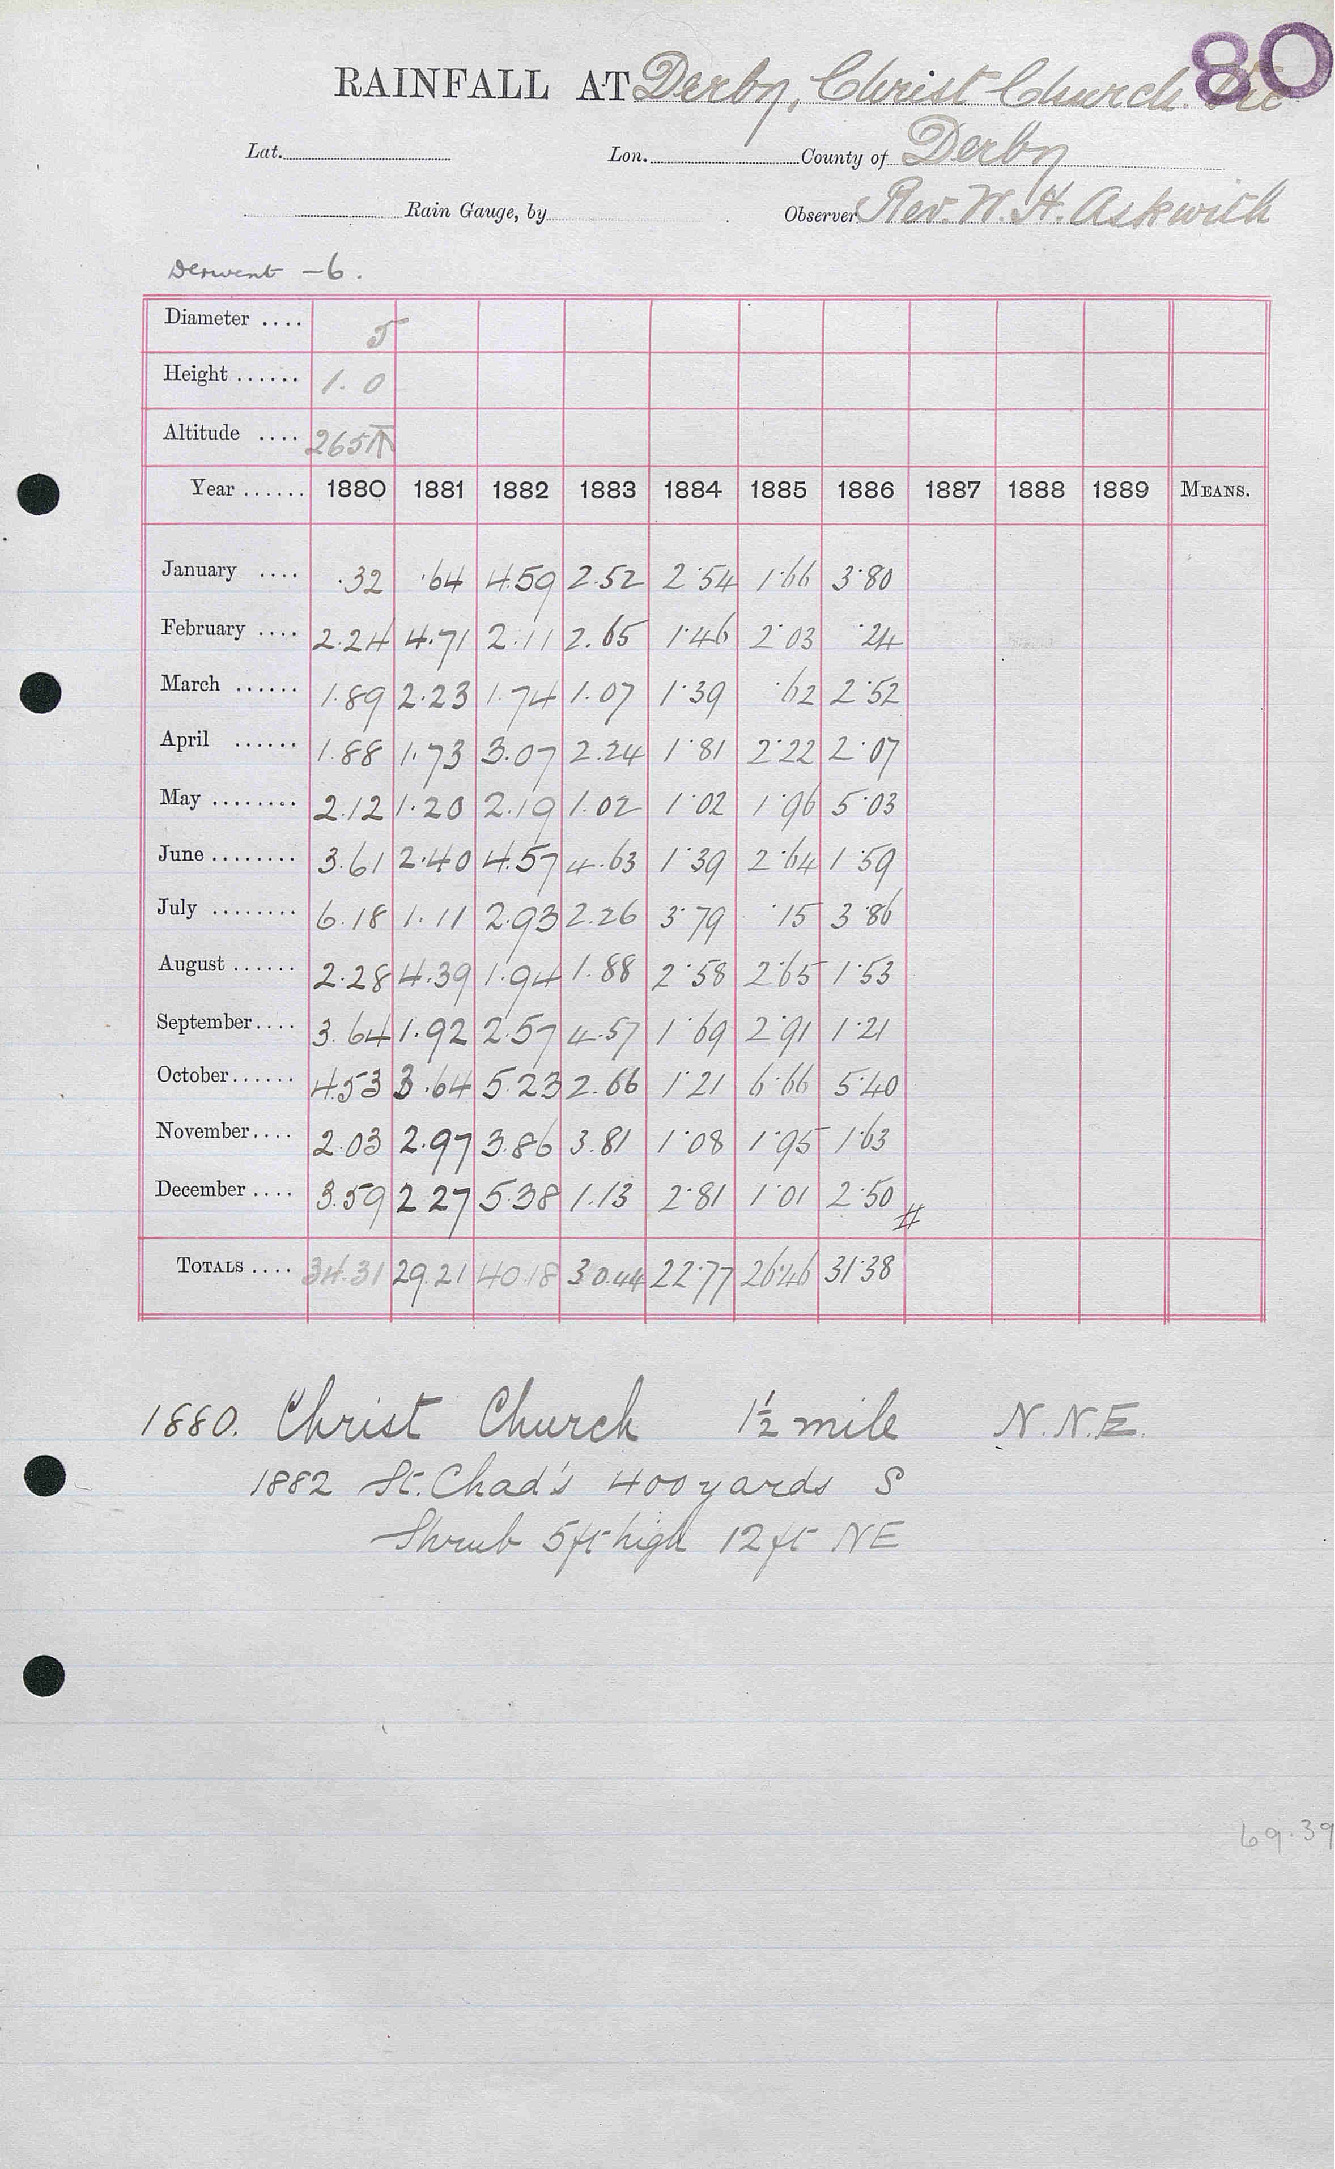 80
RAINFALL AT Derby, Christ Church Vic
Lat. Lon. County of Derby
Rain Gauge, by Observer Rev. W. H. Askwith
Derwent - 6.
Diameter .... 5
Height ...... 1.0
Altitude .... 265
Year ...... 1880 1881 1882 1883 1884 1885 1886 1887 1888 1889 MEANS.
January .... .32 .64 4.59 2.52 2.54 1.66 3.80
February .... 2.24 4.71 2.11 2.65 1.46 2.03 .24
March ...... 1.89 2.23 1.74 1.07 1.39 .62 2.52
April ...... 1.88 1.73 3.07 2.24 1.81 2.22 2.07
May ........ 2.12 1.20 2.19 1.02 1.02 1.96 5.03
June ........ 3.61 2.40 4.57 4.63 1.39 2.64 1.59
July ........ 6.18 1.11 2.93 2.26 3.79 .15 3.86
August ...... 2.28 4.39 1.94 1.88 2.58 2.65 1.53
September .... 3.64 1.92 2.57 4.57 1.69 2.91 1.21
October ...... 4.53 3.64 5.23 2.66 1.21 6.66 5.40
November .... 2.03 2.97 3.86 3.81 1.08 1.95 1.63
December .... 3.59 2 27 5.38 1.13 2.81 1.01 2.50
TOTALS .... 34.31 29.21 40.18 30.44 22.77 26.46 31.38
1880. Christ Church 1½ mile N.N.E.
1882 St. Chad's 400 yards S
Shrub 5ft high 12ft NE
69.39